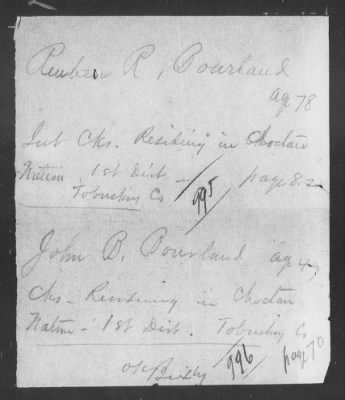 Reuben R, Bourland
age 78
Int Cks. Residing in Choctaw
Nation 1st Dist - 995 page 82
Tobucksy Co
John B. Bourland age 4
Cks - Residing in Choctaw
Nation - 1st Dist. Tobucksy Co
996 page 70